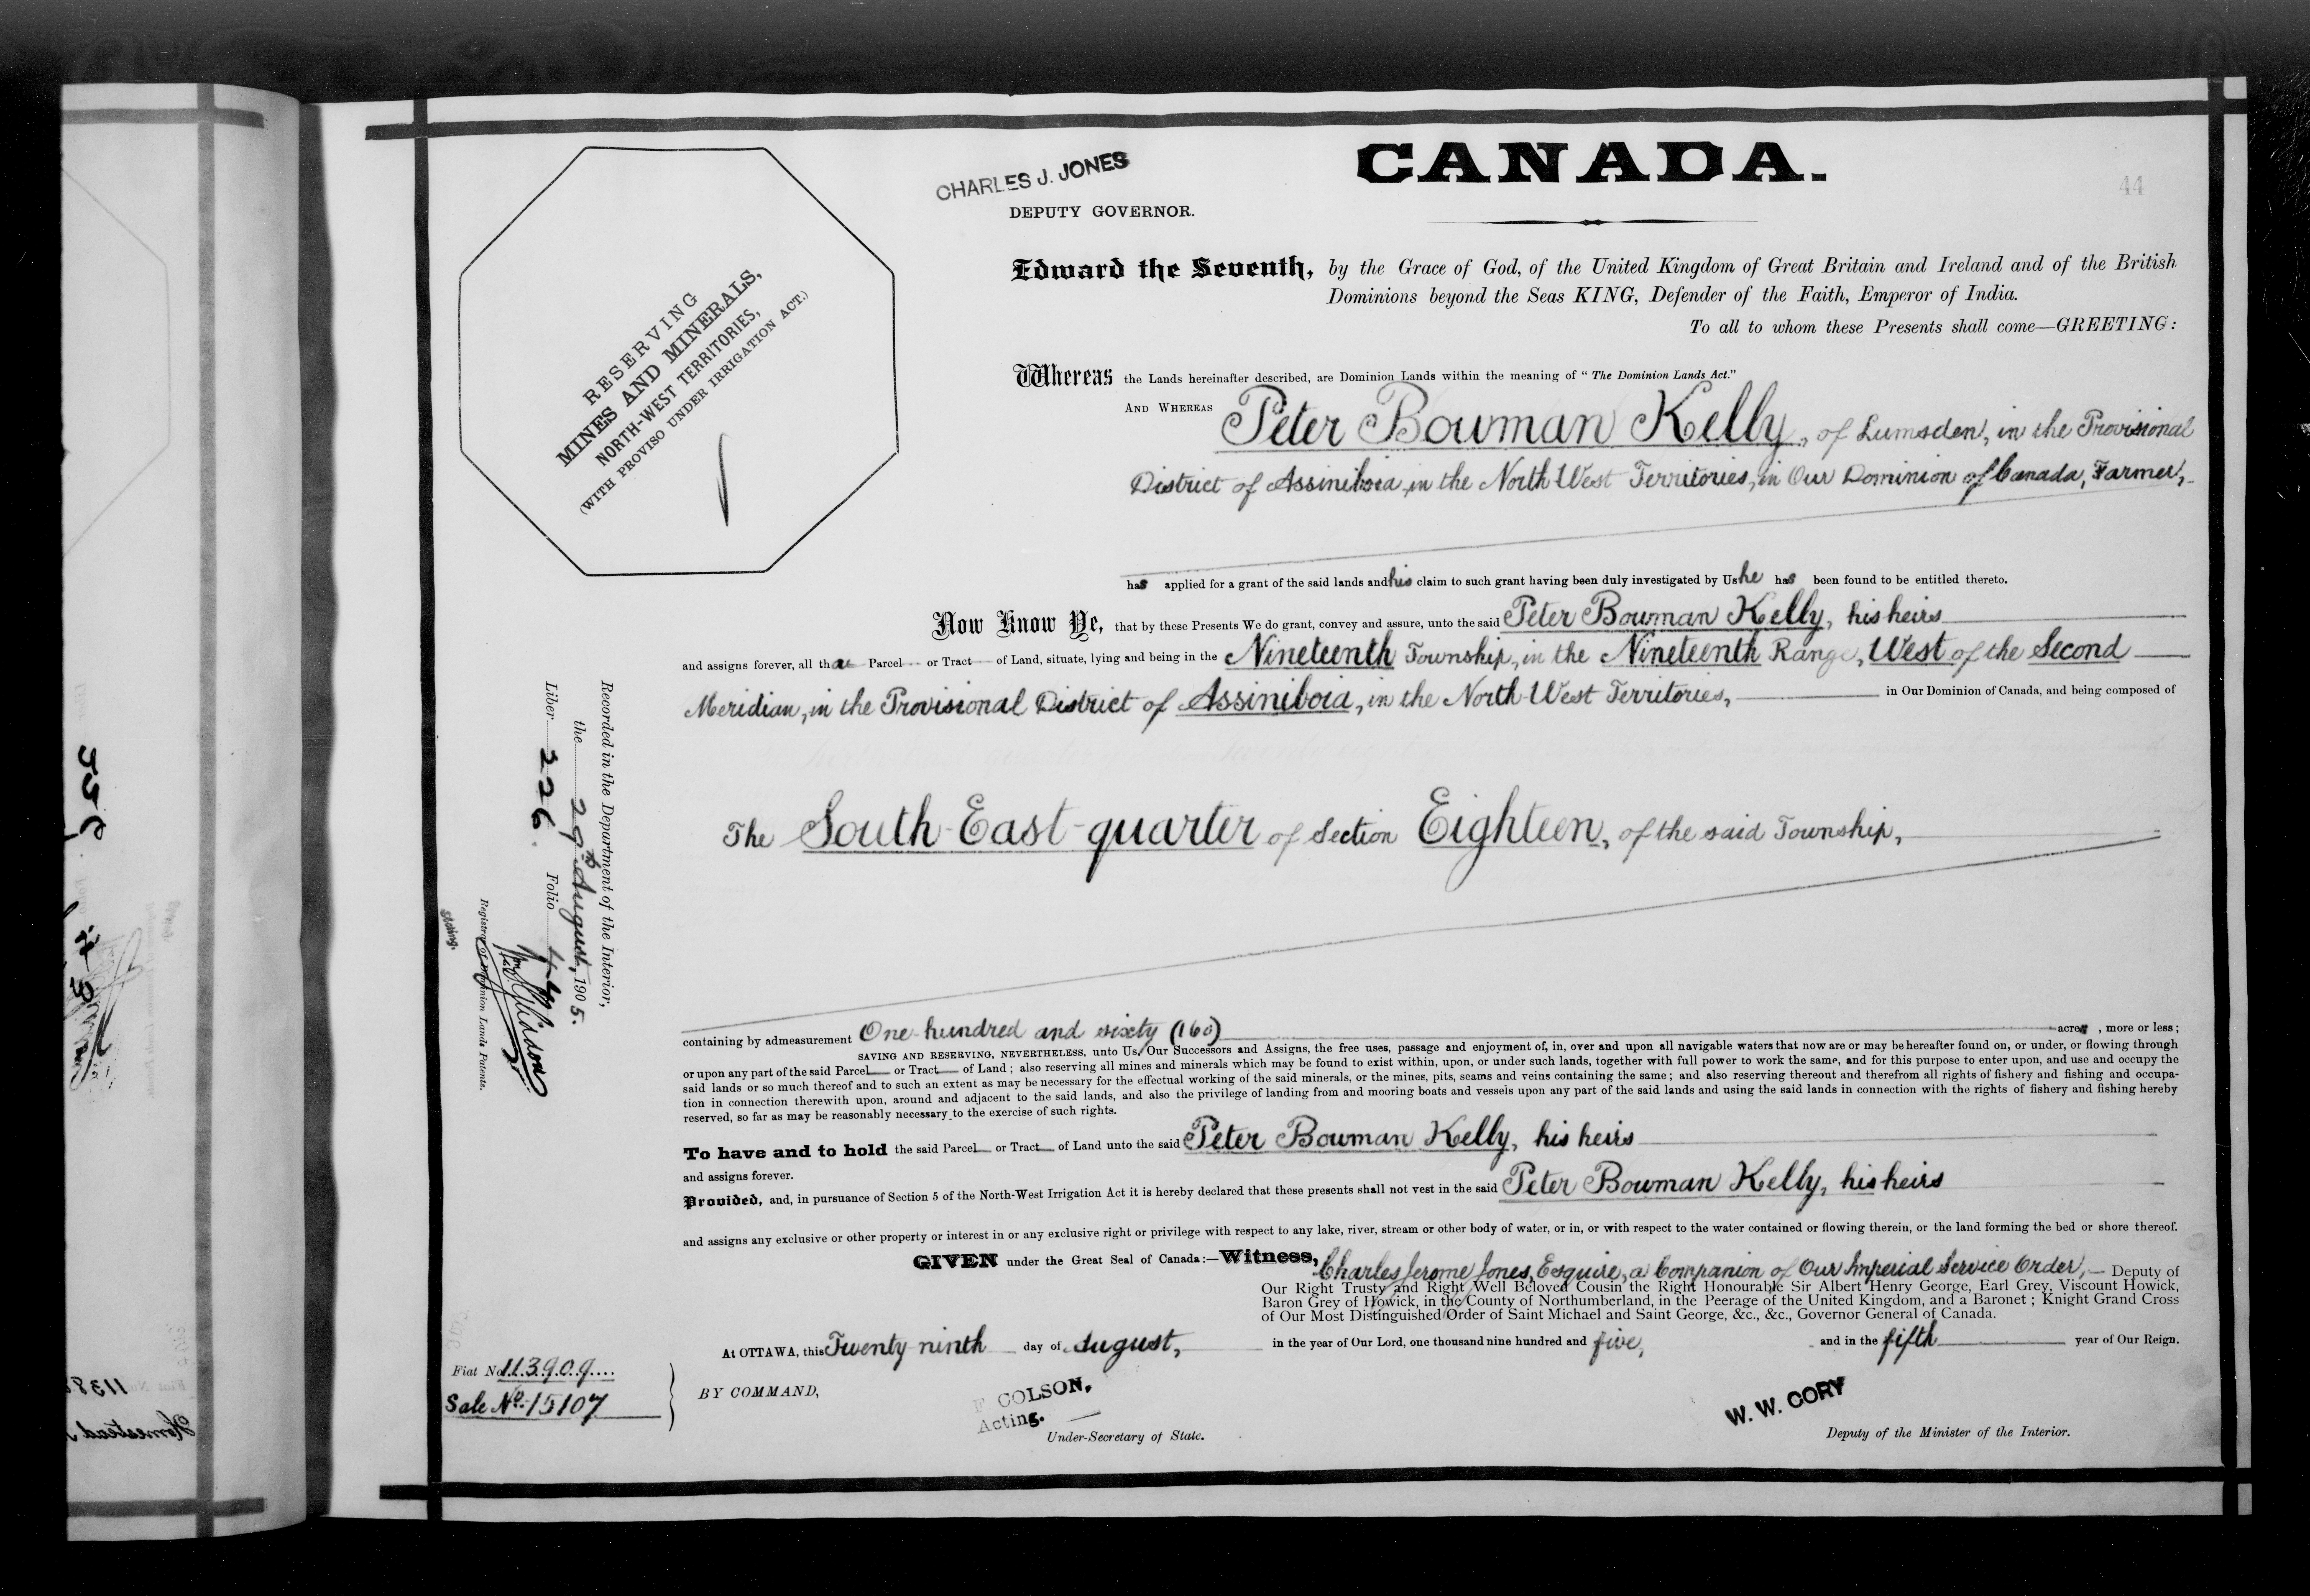 CHARLES J. JONES
DEPUTY GOVERNOR.
CANADA.
44
RESERVING
MINES AND MINERALS,
NORTH-WEST TERRITORIES,
(WITH PROVISO UNDER IRRIGATION ACT.)
Edward the Seventh, by the Grace of God, of the United Kingdom of Great Britain and Ireland and of the British
Dominions beyond the Seas KING, Defender of the Faith, Emperor of India.
To all to whom these Presents shall come—GREETING:
Whereas the Lands hereinafter described, are Dominion Lands within the meaning of "The Dominion Lands Act."
AND WHEREAS Peter Bowman Kelly, of Lumsden, in the Provisional
District of Assiniboia, in the North West Territories, in Our Dominion of Canada, Farmer,
has applied for a grant of the said lands and his claim to such grant having been duly investigated by Us he has been found to be entitled thereto.
Now Know Ye, that by these Presents We do grant, convey and assure, unto the said Peter Bowman Kelly, his heirs
and assigns forever, all that Parcel or Tract of Land, situate, lying and being in the Nineteenth Township, in the Nineteenth Range, West of the Second
Meridian, in the Provisional District of Assiniboia, in the North West Territories, in Our Dominion of Canada, and being composed of
The South-East-quarter of Section Eighteen, of the said Township,
Recorded in the Department of the Interior,
the 29th August, 1905.
Liber 226. Folio 44
Registrar of Dominion Lands Patents.
Acting.
containing by admeasurement One hundred and sixty (160) acres, more or less;
SAVING AND RESERVING, NEVERTHELESS, unto Us, Our Successors and Assigns, the free uses, passage and enjoyment of, in, over and upon all navigable waters that now are or may be hereafter found on, or under, or flowing through
or upon any part of the said Parcel or Tract of Land; also reserving all mines and minerals which may be found to exist within, upon, or under such lands, together with full power to work the same, and for this purpose to enter upon, and use and occupy the
said lands or so much thereof and to such an extent as may be necessary for the effectual working of the said minerals, or the mines, pits, seams and veins containing the same; and also reserving thereout and therefrom all rights of fishery and fishing and occupa-
tion in connection therewith upon, around and adjacent to the said lands, and also the privilege of landing from and mooring boats and vessels upon any part of the said lands and using the said lands in connection with the rights of fishery and fishing hereby
reserved, so far as may be reasonably necessary to the exercise of such rights.
To have and to hold the said Parcel or Tract of Land unto the said Peter Bowman Kelly, his heirs
and assigns forever.
Provided, and, in pursuance of Section 5 of the North-West Irrigation Act it is hereby declared that these presents shall not vest in the said Peter Bowman Kelly, his heirs
and assigns any exclusive or other property or interest in or any exclusive right or privilege with respect to any lake, river, stream or other body of water, or in, or with respect to the water contained or flowing therein, or the land forming the bed or shore thereof.
GIVEN under the Great Seal of Canada:—Witness, Charles Jerome Jones, Esquire, a Companion of Our Imperial Service Order, Deputy of
Our Right Trusty and Right Well Beloved Cousin the Right Honourable Sir Albert Henry George, Earl Grey, Viscount Howick,
Baron Grey of Howick, in the County of Northumberland, in the Peerage of the United Kingdom, and a Baronet; Knight Grand Cross
of Our Most Distinguished Order of Saint Michael and Saint George, &c., &c., Governor General of Canada.
At OTTAWA, this Twenty ninth day of August, in the year of Our Lord, one thousand nine hundred and five, and in the fifth year of Our Reign.
Fiat No 113909
Sale No. 15107
BY COMMAND,
F COLSON,
Acting.
Under-Secretary of State.
W. W. CORY
Deputy of the Minister of the Interior.